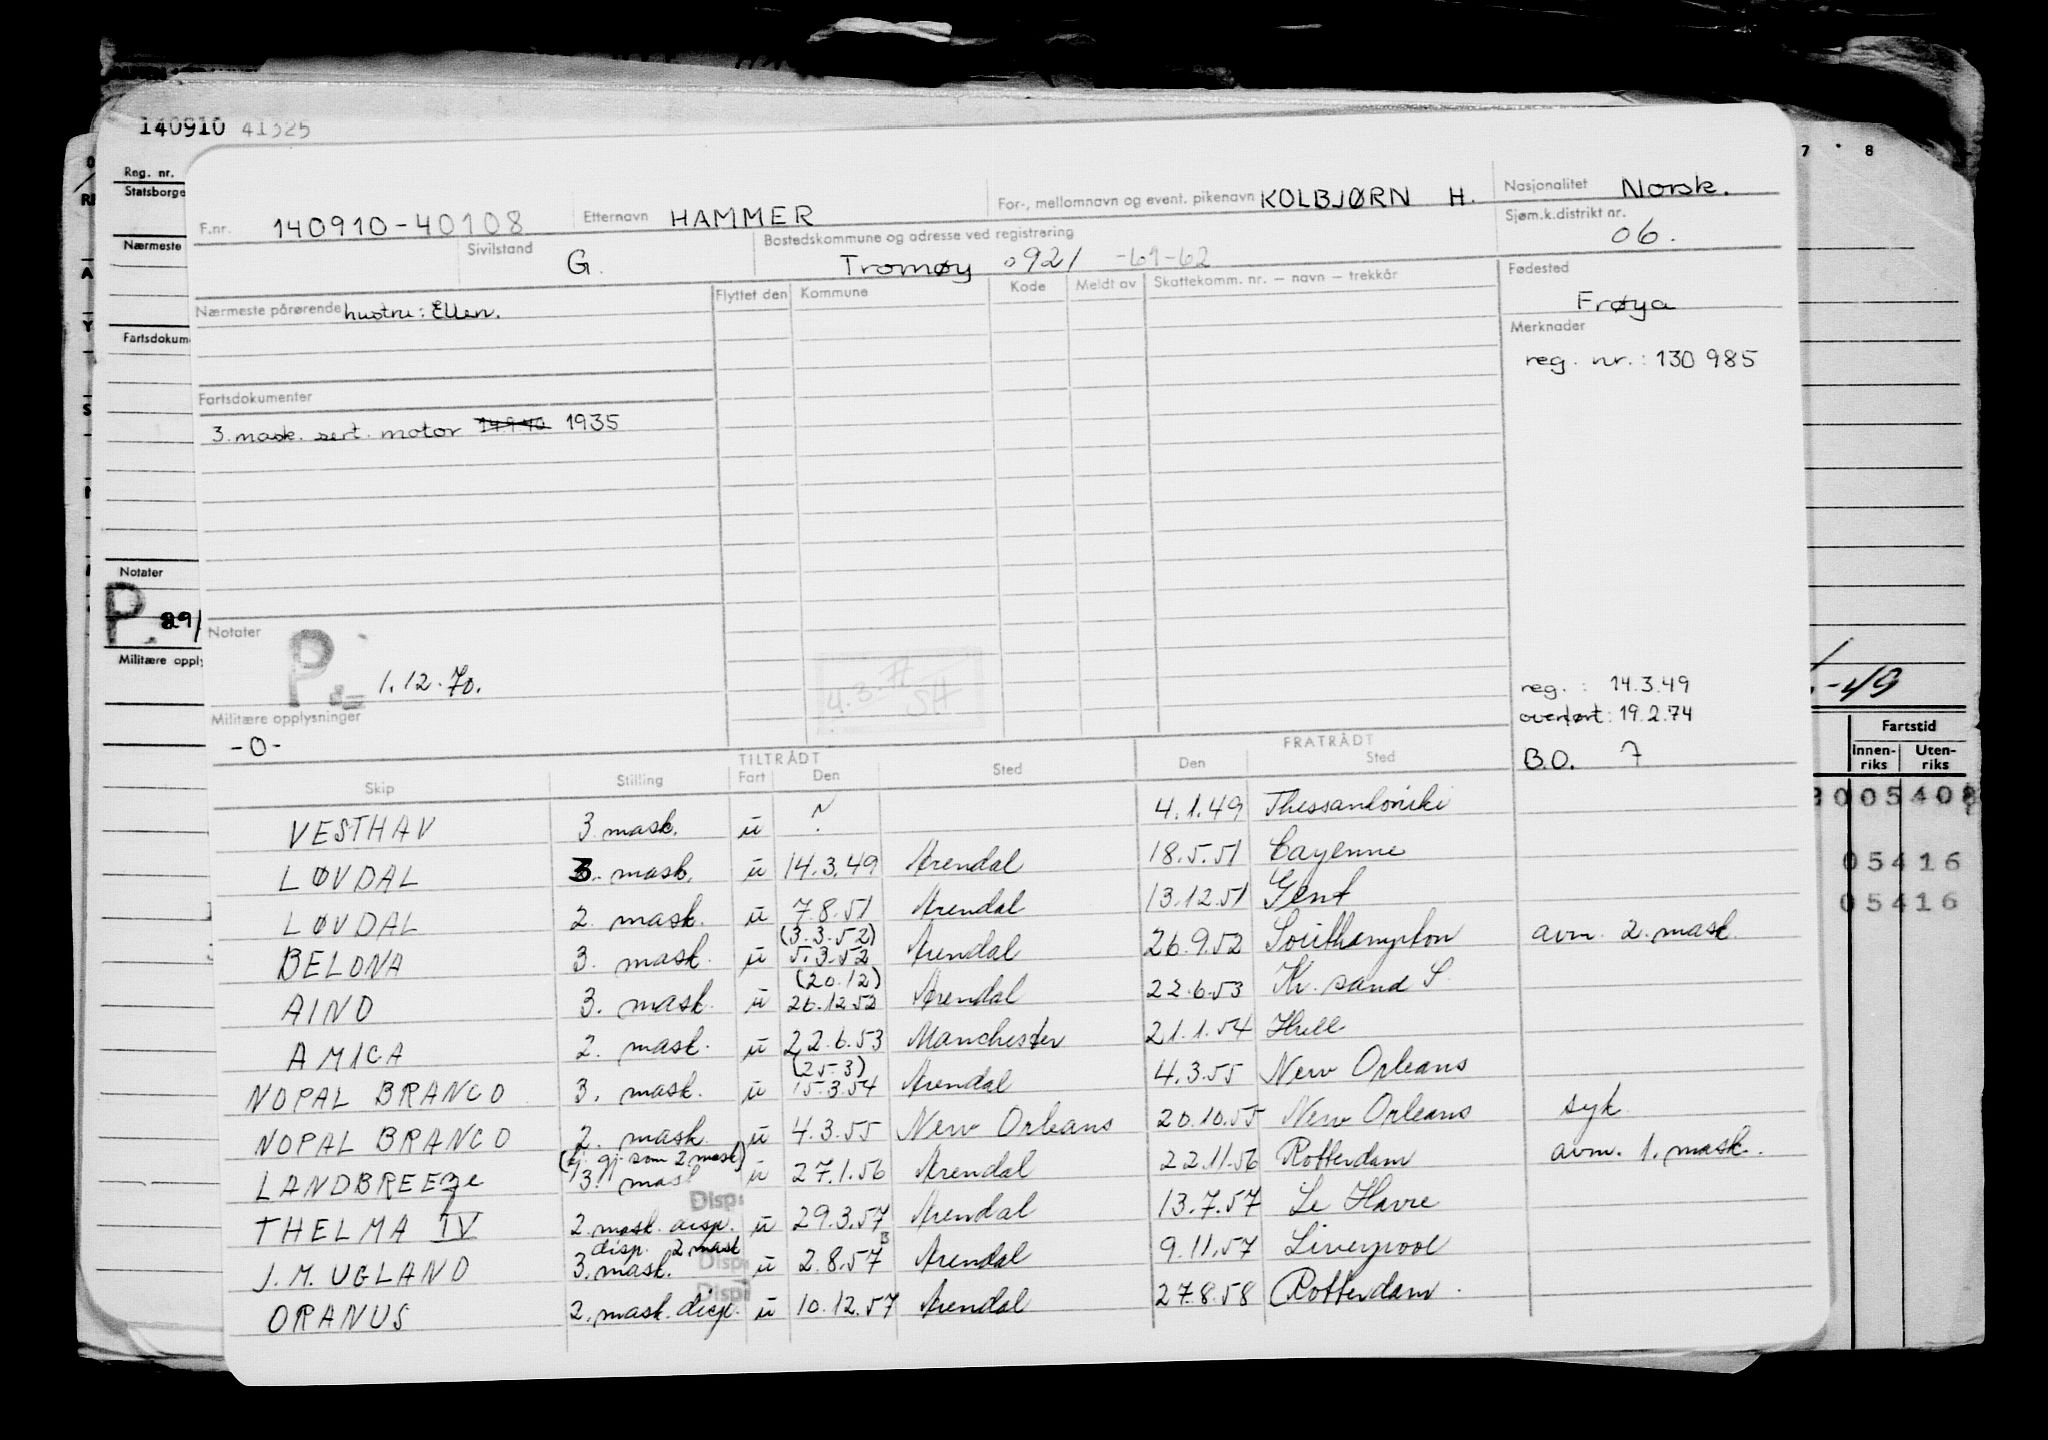 140910 41325
Reg. nr.
Statsborge
Nærmeste
Fartsdokum
Notater
P. 29/
Militære opply
7 8
-49
Fartstid
Innen-riks Uten-riks
005408
05416
05416
F.nr. 140910-40108 Etternavn HAMMER For-, mellomnavn og event. pikenavn KOLBJØRN H. Nasjonalitet Norsk.
Sivilstand G. Bostedskommune og adresse ved registrering Tromøy 0921 -61-62 Sjøm.k.distrikt nr. 06.
Nærmeste pårørende hustru: Ellen. Flyttet den Kommune Kode Meldt av Skattekomm. nr. — navn — trekkår Fødested Frøya
Merknader
reg. nr.: 130 985
Fartsdokumenter
3. mask. sert. motor 14.9.40 1935
Notater
P 1.12.70.
4.3.71
SH
reg.: 14.3.49
overført: 19.2.74
Militære opplysninger
-0-
B.O. 7
TILTRÅDT FRATRÅDT
Skip Stilling Fart Den Sted Den Sted
VESTHAV 3 mask. u ? 4.1.49 Thessaloniki
LØVDAL 3. mask. u 14.3.49 Arendal 18.5.51 Cayenne
LØVDAL 2. mask. u 7.8.51 Arendal 13.12.51 Gent
BELONA 3. mask. u (3.3.52) 5.3.52 Arendal 26.9.52 Southampton avm. 2. mask.
AINO 3. mask. u (20.12) 26.12.52 Arendal 22.6.53 Kr. sand S.
AMICA 2. mask. u 22.6.53 Manchester 21.1.54 Hull
NOPAL BRANCO 3. mask. u (25.3) 15.3.54 Arendal 4.3.55 New Orleans
NOPAL BRANCO 2. mask. u 4.3.55 New Orleans 20.10.55 New Orleans syk
LANDBREEZE (tj. gj. som 2 mask) 3. mask u 27.1.56 Arendal 22.11.56 Rotterdam avm. 1. mask.
THELMA IV 2. mask. disp. Disp: u 29.3.57 Arendal 13.7.57 Le Havre
J.M. UGLAND disp. 2 mask 3. mask. Disp: u 2.8.57 Arendal 9.11.57 Liverpool
ORANUS 2. mask. disp. Disp: u 10.12.57 Arendal 27.8.58 Rotterdam.